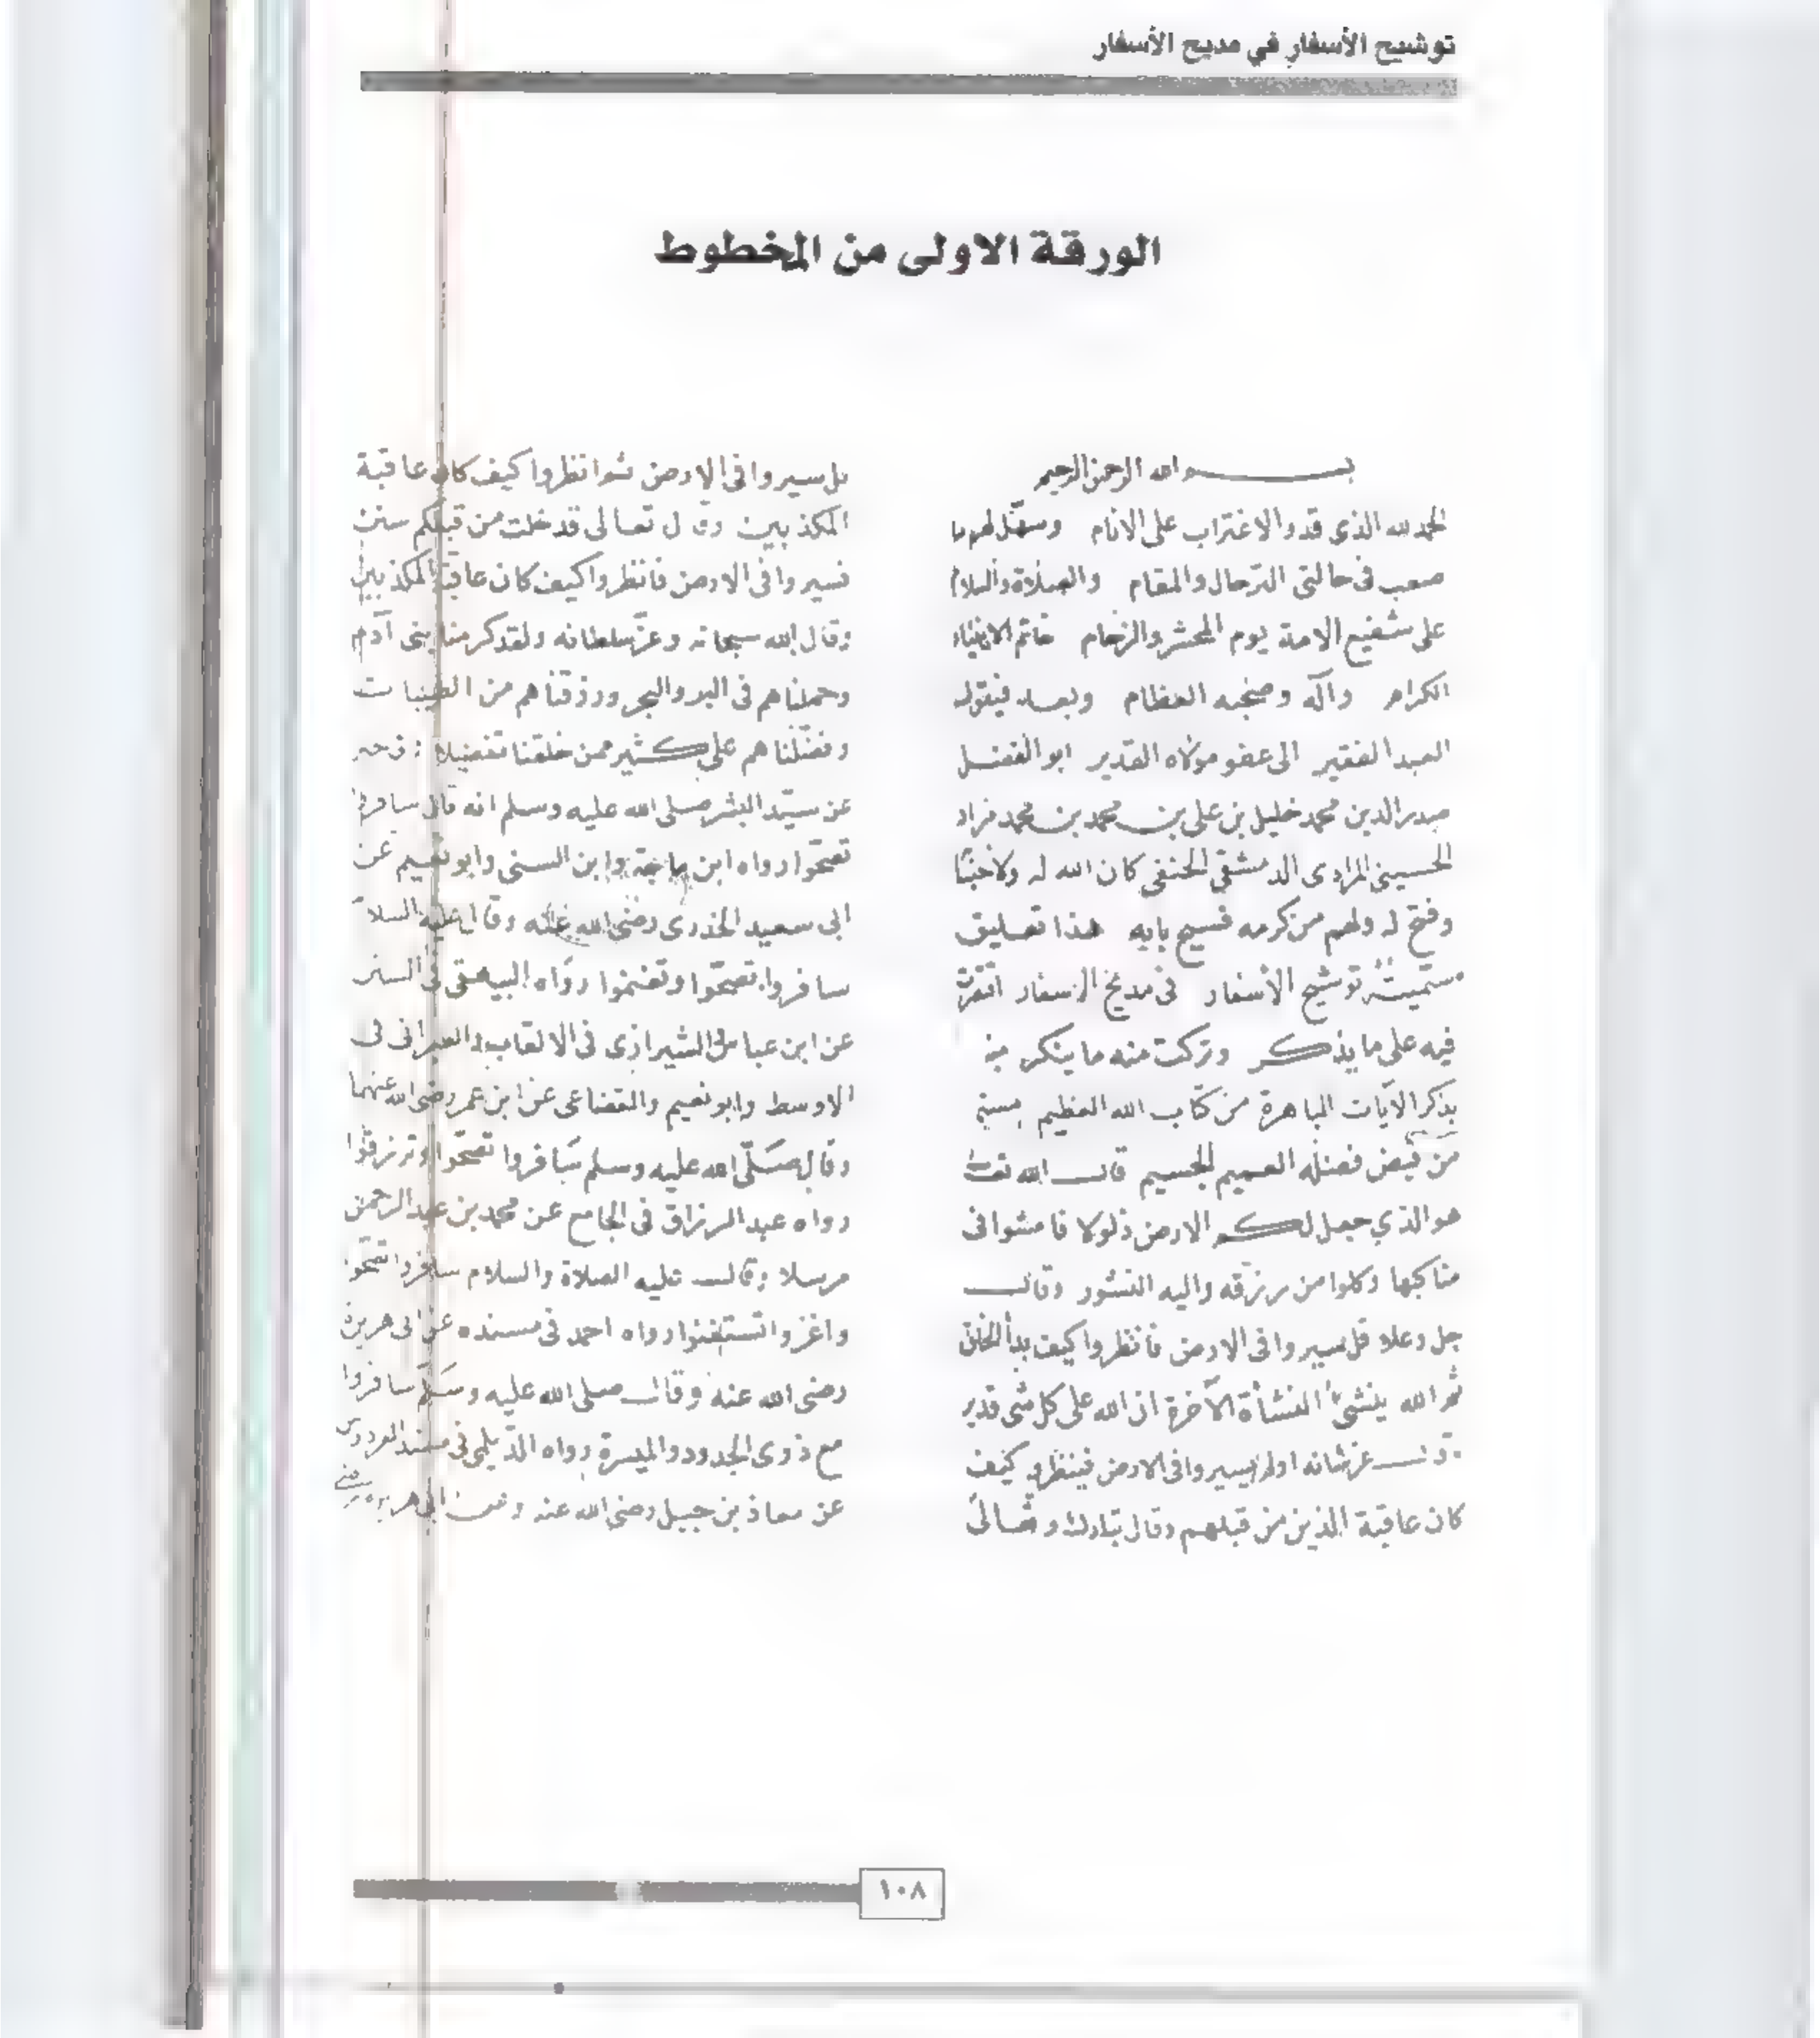 توشيح الأسفار في مديح الأسفار
الورقة الاولى من المخطوط
بسم الله الرحمن الرحيم
الحمد لله الذى قدر الاغتراب على الانام وسهّل لهم ما
صعب فى حالتى الترحال والمقام والصلاة والسلام
على شفيع الامة يوم المحشر والزحام خاتم الانبياء
الكرام وآله وصحبه العظام وبعد فيقول
العبد الفقير الى عفو مولاه القدير ابو الفضل
صدر الدين محمد خليل بن على بن محمد بن محمد مراد
الحسينى المرادى الدمشقى الحنفى كان الله له ولاحبّا
وفتح له ولهم من كرمه فسيح بابه هذا تعليق
سمّيته توشيح الأسفار فى مديح الاسفار اقتصرت
فيه على ما يذكر وتركت منه ما ينكر
بذكر الآيات الباهرة من كتاب الله العظيم
من فيض فضله العميم الجسيم قال الله تعالى
هو الذي جعل لكم الارض ذلولا فامشوا فى
مناكبها وكلوا من رزقه واليه النشور وقال
جل وعلا قل سيروا فى الارض فانظروا كيف بدأ الخلق
ثم الله ينشئ النشأة الآخرة ان الله على كل شئ قدير
وقال عز شانه اولم يسيروا فى الارض فينظروا كيف
كان عاقبة الذين من قبلهم وقال تبارك وتعالى
قل سيروا فى الارض ثم انظروا كيف كان عاقبة
المكذبين وقال تعالى قد خلت من قبلكم سنن
فسيروا فى الارض فانظروا كيف كان عاقبة المكذبين
وقال الله سبحانه وعزّ سلطانه ولقد كرمنا بنى آدم
وحملناهم فى البر والبحر ورزقناهم من الطيبات
وفضّلناهم على كثير ممن خلقنا تفضيلا
عن سيّد البشر صلى الله عليه وسلم انه قال سافروا
تصحّوا رواه ابن ماجة وابن السنى وابو نعيم عن
ابى سعيد الخدرى رضى الله عنه وقال عليه السلام
سافروا تصحّوا وتغنموا رواه البيهقى فى السنن
عن ابن عباس والشيرازى فى الالقاب والطبرانى فى
الاوسط وابو نعيم والقضاعى عن ابن عمر رضى الله عنهما
وقال صلّى الله عليه وسلم سافروا تصحّوا وترزقوا
رواه عبد الرزاق فى الجامع عن محمد بن عبد الرحمن
مرسلا وقال عليه الصلاة والسلام سافروا تصحّوا
واغزوا تستغنوا رواه احمد فى مسنده عن ابى هريرة
رضى الله عنه وقال صلى الله عليه وسلّم سافروا
مع ذوى الجدود والميسرة رواه الدّيلمى فى مسند الفردوس
عن معاذ بن جبيل رضى الله عنه وعن ابى هريرة رضى
١٠٨